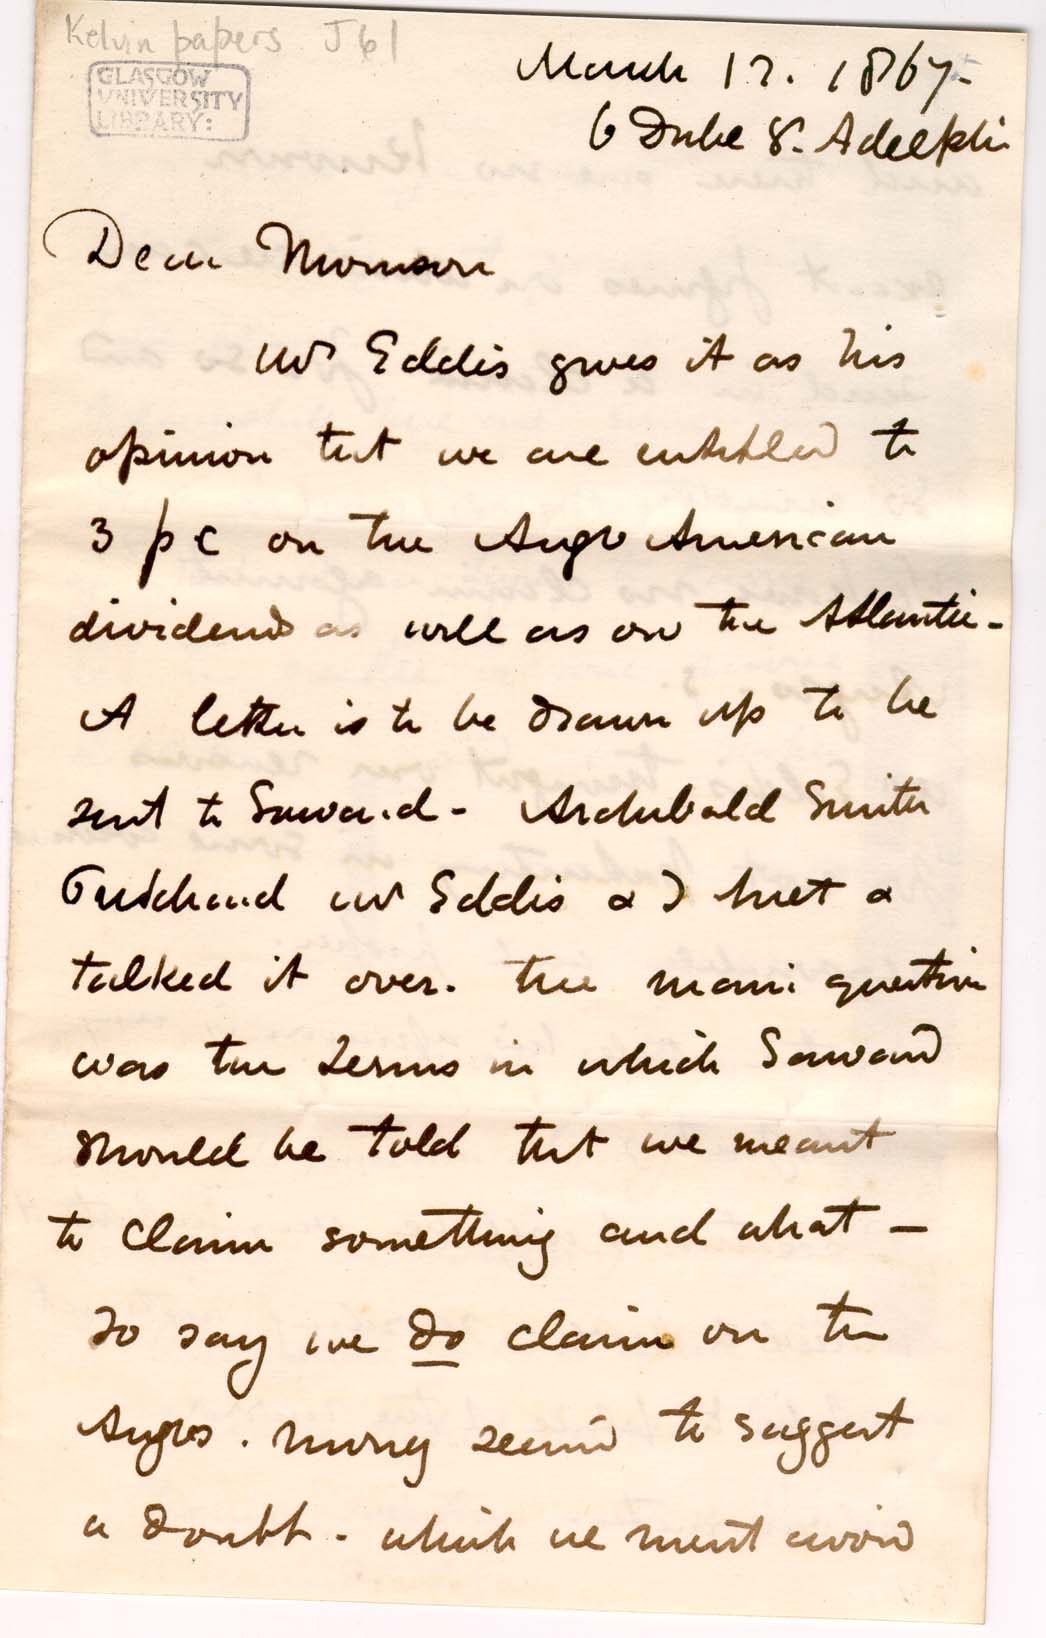 Kelvin papers J61
GLASGOW
UNIVERSITY
LIBRARY:
March 12. 1867.
6 Duke S. Adelphi
Dear Thomson
Mr Eddis gives it as his
opinion that we are entitled to
3 p c on the Anglo American
dividend as well as on the Atlantic -
A letter is to be drawn up to be
sent to Saward - Archibald Smith
Pritchard Mr Eddis & I met &
talked it over. The main question
was the terms in which Saward
should be told that we meant
to claim something and what —
To say we do claim on the
Anglos. money seemed to suggest
a doubt - which we must avoid